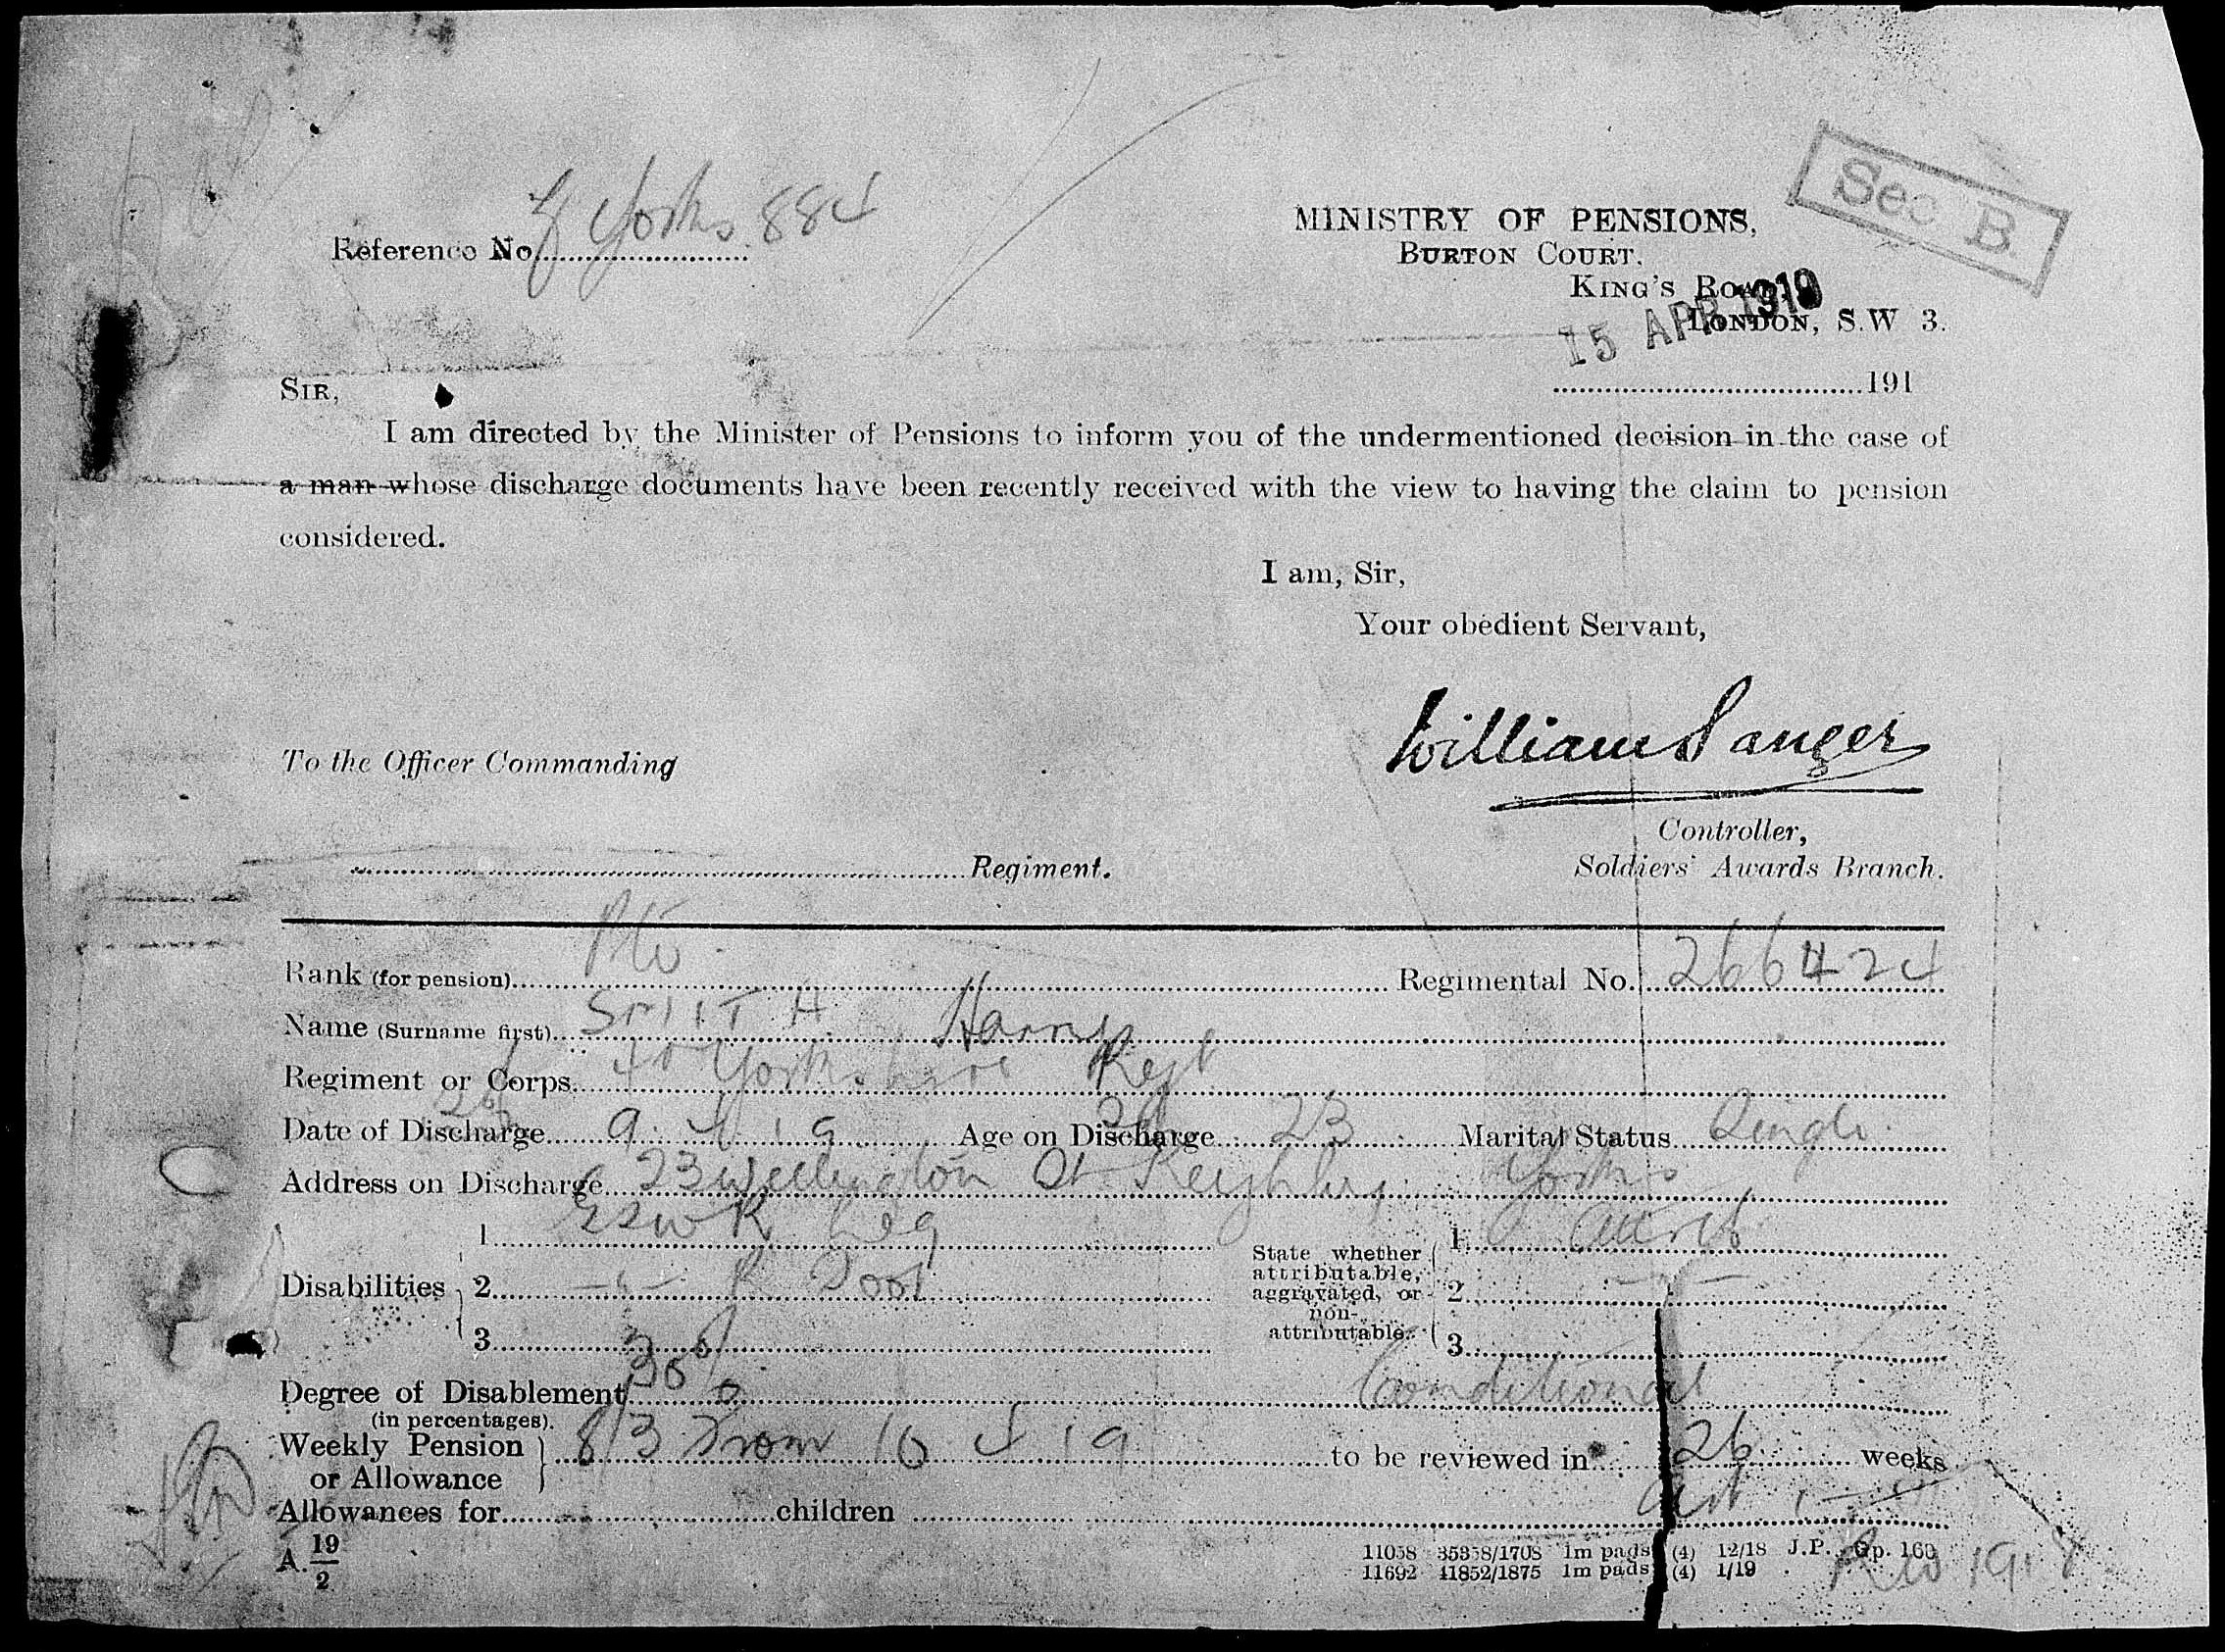 Sec B.
Reference No. Yorks 884
MINISTRY OF PENSIONS,
BURTON COURT,
KING'S ROAD,
LONDON, S.W 3.
15 APR 1919
191
SIR,
I am directed by the Minister of Pensions to inform you of the undermentioned decision in the case of
a man whose discharge documents have been recently received with the view to having the claim to pension
considered.
I am, Sir,
Your obedient Servant,
William Sanger
To the Officer Commanding
Controller,
Regiment.
Soldiers' Awards Branch.
Rank (for pension) Pte Regimental No. 266424
Name (Surname first) SMITH Harry
Regiment or Corps Yorkshire Regt
Date of Discharge 9.4.19 Age on Discharge 23 Marital Status Single
Address on Discharge 23 Wellington St Keighley Yorks
Disabilities
1 GSW R Leg
2 -"- R Foot
3
State whether attributable, aggravated, or non-attributable.
1
2
3
Degree of Disablement 30% Conditional
(in percentages).
Weekly Pension or Allowance 8/3 from 10 4 19 to be reviewed in 26 weeks
Allowances for children
A. 19/2
11058 35358/1708 1m pads (4) 12/18 J.P. Gp. 160
11692 41852/1875 1m pads (4) 1/19